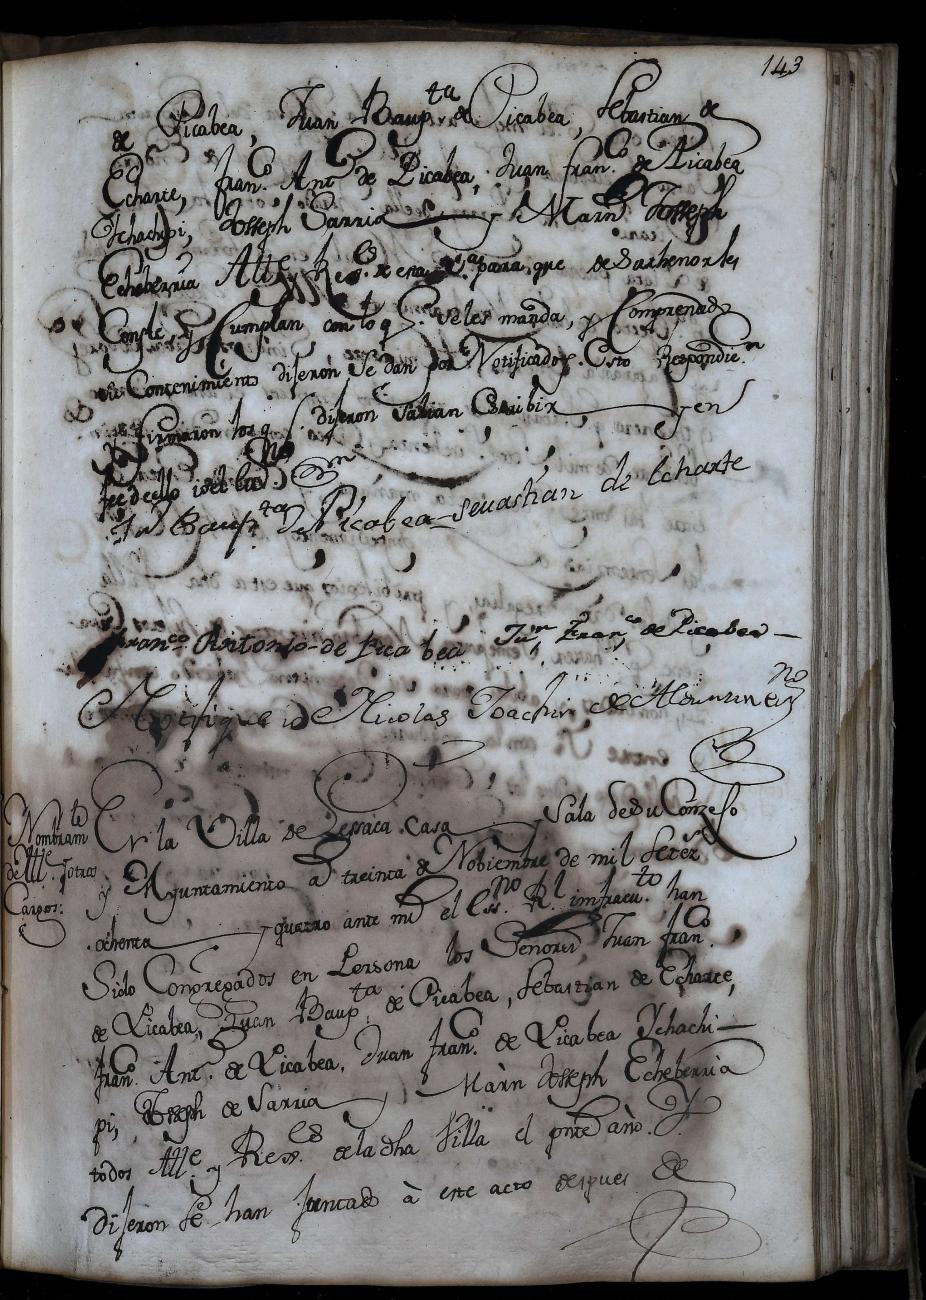 143
de Picabea, Juan Baup.ta de Picabea, Sebastian de
Echarte, fran.co Ant.o de Picabea, Juan fran.co de Picabea
Ychachipi, Joseph Sarria y Marn Joseph
Echeberria Allc.e Res.
Conste y Cumplan con lo q.e se les manda, y Comprenad
su Contenimiento dijeron se dan por Notificados. Esto Respondie.on
y firmaron los q.e dijeron Sabian Escribir y en
fee de ello io el Ess.no
Jn Baup.ta de Picabea Sevastian de Echarte
Fran.co Antonio de Picabea Ju.n Fran.co de Picabea
Notifique io Nicolas Joachin de
Nombram.to
de Allc.e y otros
Cargos:
En la Villa de Lesaca Casa y Sala de su Conzejo
y Ayuntamiento a treinta de Nobiembre de mil Setez.s
ochenta y quatro ante mi el Ess.no R.l imfraeu.to han
Sido Congregados en Persona los Señores Juan fran.co
de Picabea, Juan Baup.ta de Picabea, Sebastian de Echarte,
fran.co Ant.o de Picabea, Juan fran.co de Picabea Ychachi-
pi, Joseph de Sarria y Marn Joseph Echeberria
todos Allc.e y Rex.es de la dha Villa el pnte año. Y
dijeron se han Juntado à este acto despues de